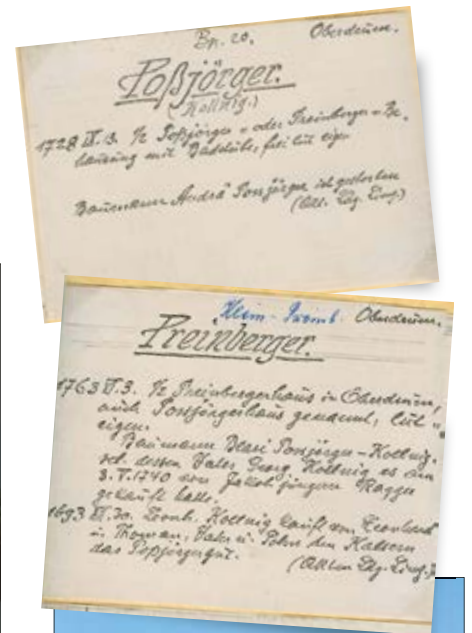 Bp. 20. Oberdrum.
Poßjörger.
(Kollnig.)
1728 II. 13. ½ Poßjörger- oder Preinberger-Be-
hausung mit Badstube, frei lut eigen
Baumann Andrä Possjörger ist gestorben
Oberdrum.
Preinberger.
1763 3. ½ Preinbergerhaus in Oberdrum,
auch Possjörgerhaus genannt, lut
eigen.
Baumann Blasi Possjörger-Kollnig,
dessen Vater Georg Kollnig es am
3. V. 1740 von Jakob jüngern Ragger
gekauft hatte.
1693 30. Leonh. Kollnig kauft von Leonhard
u. Thoman, Vater u. Sohn den
das Poßjörgergut.